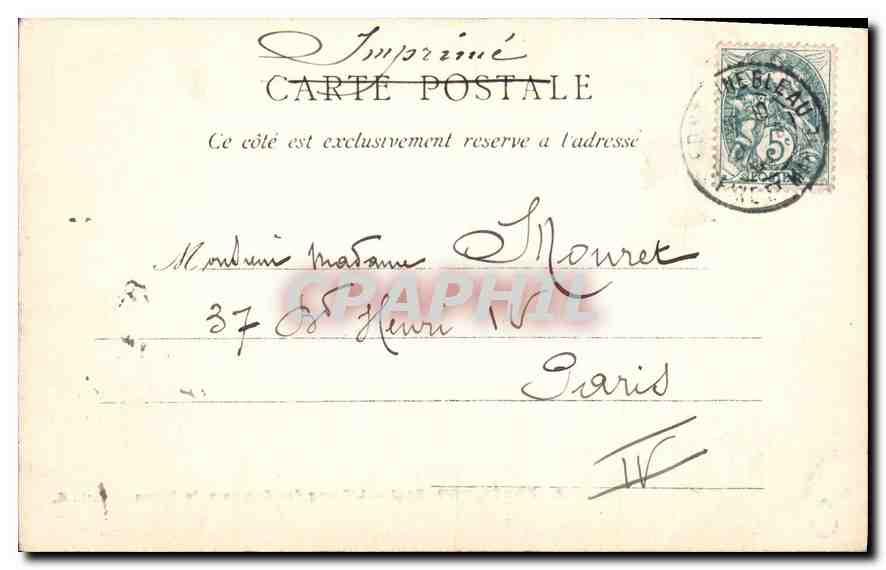 Imprimé
CARTE POSTALE
Ce côté est exclusivement reserve a l'adresse
5c
Monsieur Madame Mouret
37 Bd Henri IV
Paris
IV
CPAPHIL